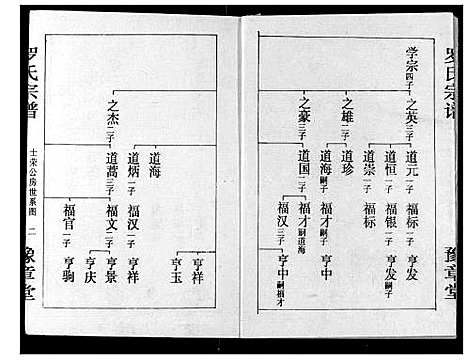 罗氏宗谱
豫章堂
学宗四子
之英三子
之雄二子
之豪三子
道元一子
道恒一子
道崇一子
道珍
道海嗣子
道国二子
福标一子
福银一子
福标
福才嗣子
福才嗣道海
福汉三子
亨发
亨发嗣子
亨中
亨中嗣福才
之杰三子
道海
道炳二子
道蒿三子
福汉一子
福文二子
福官一子
亨祥
亨玉
亨祥
亨景
亨庆
亨驹
罗氏宗谱
士荣公房世系图
二
豫章堂